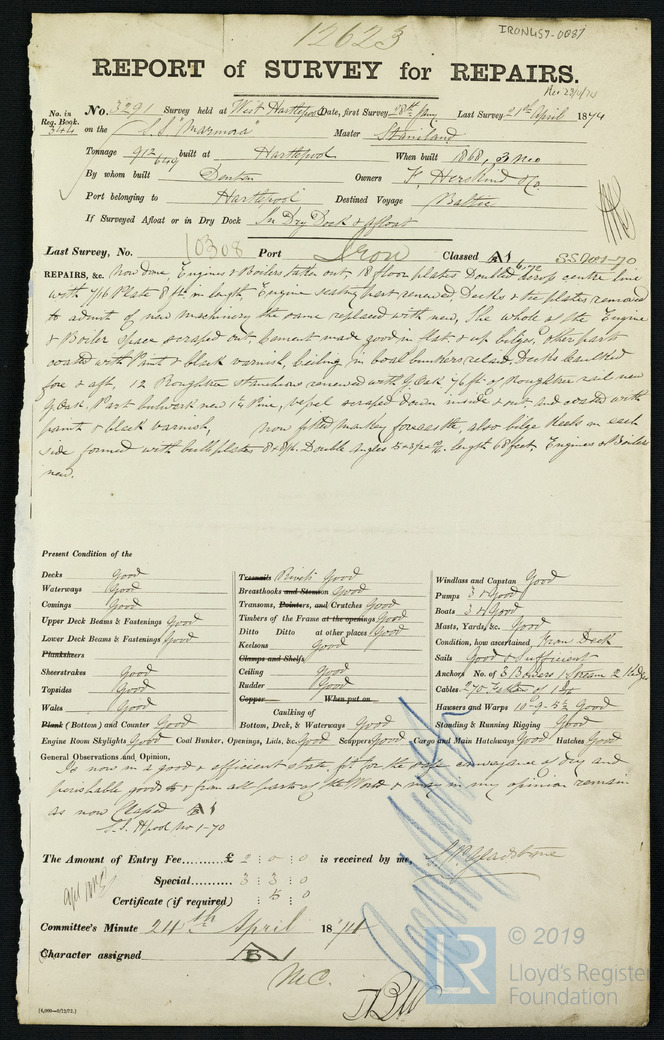 12623
IRON459-0087
REPORT of SURVEY for REPAIRS.
Rec 23/4/74
No. in Reg. Book. 344
No. 3291 Survey held at West Hartlepool Date, first Survey 28th Jany Last Survey 21st April 1874
on the S.S. "Marmora" Master Staniland
Tonnage 912 649 built at Hartlepool When built 1868, 3 mo
By whom built Denton Owners Herskind & Co.
Port belonging to Hartlepool Destined Voyage Baltic
If Surveyed Afloat or in Dry Dock In Dry Dock & afloat
Last Survey, No. 10308 Port Iron Classed A 1 6,72
REPAIRS, &c. Now done Engines & Boilers taken out, 18 floor plates Doubled across centre line
with 7/16 Plate 8 ft in length, Engine seating part renewed, Decks & tie plates removed
to admit of new machinery the same replaced with new, The whole of the Engine
& Boiler space scraped out, Cement made good in flat & up bilges, other parts
coated with Paint & black varnish, Ceiling in coal bunkers relaid, Decks Caulked
fore & aft, 12 Roughtree stanchions renewed with G.Oak 76 ft of Roughtree rail new
G.Oak, Part bulwark new 1½ Pine, vessel scraped down inside & out and coated with
paint & black varnish, now fitted monkey forecastle, also bilge keels on each
side formed with bulb plates Double Angles length 68 feet. Engines & Boilers
new.
Present Condition of the
Decks Good
Waterways Good
Comings Good
Upper Deck Beams & Fastenings Good
Lower Deck Beams & Fastenings Good
Planksheers
Sheerstrakes Good
Topsides Good
Wales Good
Plank (Bottom) and Counter Good
Treenails Rivets Good
Breasthooks and Stemson Good
Transoms, Pointers, and Crutches Good
Timbers of the Frame at the openings Good
Ditto Ditto at other places Good
Keelsons Good
Clamps and Shelfs
Ceiling Good
Rudder Good
Copper When put on
Caulking of
Bottom, Deck, & Waterways Good
Windlass and Capstan Good
Pumps 3 & Good
Boats 3 & Good
Masts, Yards, &c. Good
Condition, how ascertained From Deck
Sails Good & Sufficient
Anchors No. of 3 Bowers 1 Stream 2 Kedges
Cables 270 Fathm of
Hawsers and Warps Good
Standing & Running Rigging Good
Engine Room Skylights Good Coal Bunker, Openings, Lids, &c. Good Scuppers Good Cargo and Main Hatchways Good Hatches Good
General Observations and Opinion,
Is now in a good & efficient state fit for the safe conveyance of Dry and
perishable goods to & from all parts of the World & may in my opinion remain
as now Classed A 1
S.S. Hpool No 1-70
The Amount of Entry Fee......... £ 2 : 0 : 0 is received by me,
Special....... 3 : 3 : 0 S.P. Gladstone
Certificate (if required) : 5 : 0
Committee's Minute 24th April 1874
Character assigned
MC.
© 2019
LR
Lloyd's Register
Foundation